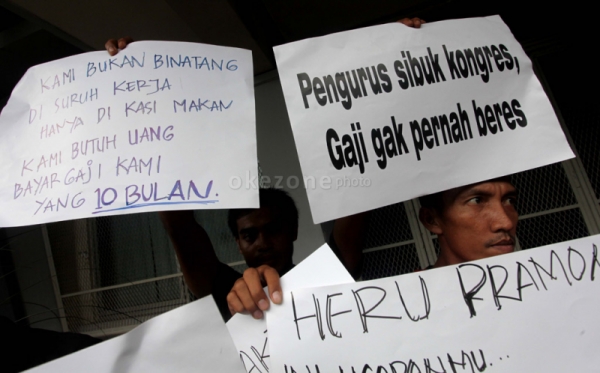 KAMI BUKAN BINATANG
DI SURUH KERJA
HANYA DI KASI MAKAN
KAMI BUTUH UANG
BAYAR GAJI KAMI
YANG 10 BULAN.
Pengurus sibuk kongres,
Gaji gak pernah beres
okezone photo
HERU PRAMON